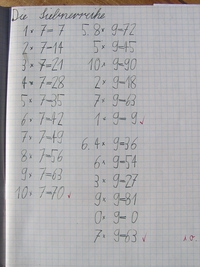 Die Siebnerreihe
1 · 7=7
2 · 7=14
3 · 7=21
4 · 7=28
5 · 7=35
6 · 7=42
7 · 7=49
8 · 7=56
9 · 7=63
10 · 7=70
5. 8 · 9=72
5 · 9=45
10 · 9=90
2 · 9=18
7 · 9=63
1 · 9=9
6. 4 · 9=36
6 · 9=54
3 · 9=27
9 · 9=81
0 · 9=0
7 · 9=63